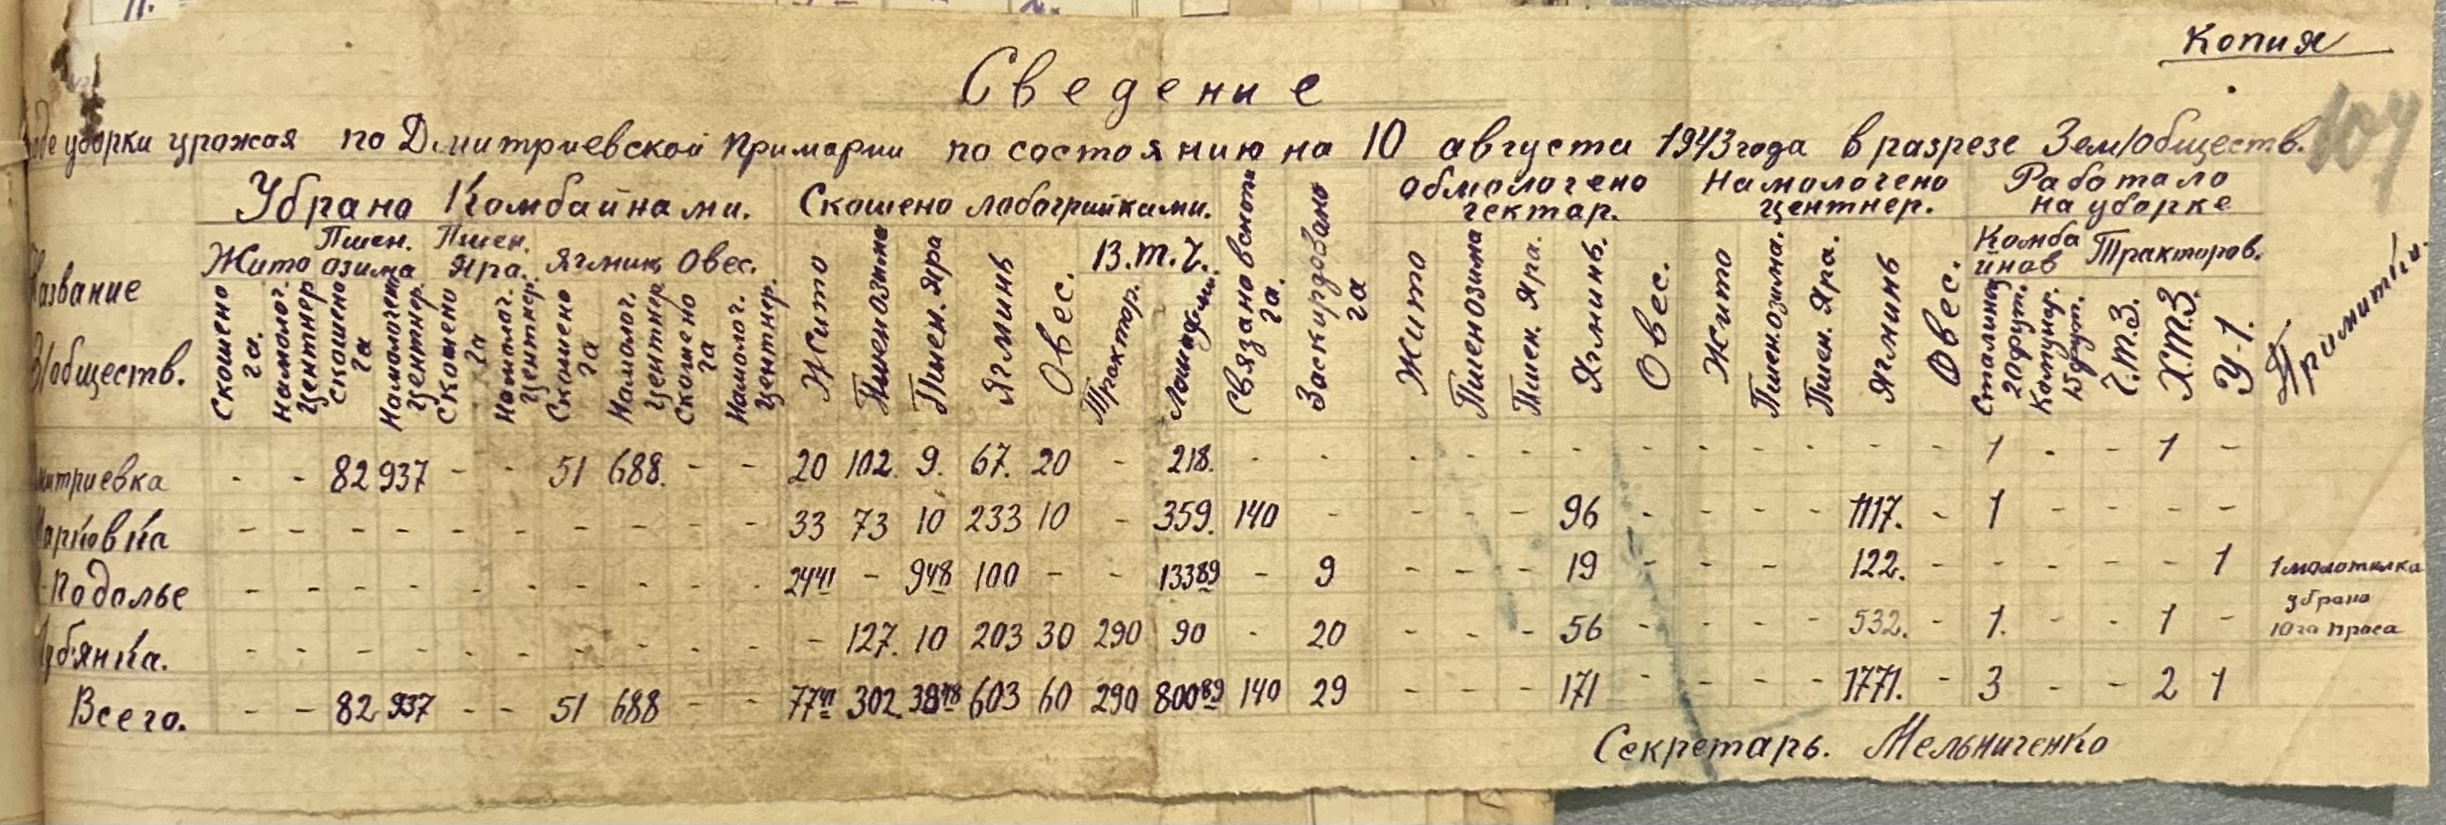 Копия
Сведение
107
уборки урожая по Дмитриевской Примарии по состоянию на 10 августа 1943 года в разрезе Зем/обществ.
Убрано Комбайнами. Скошено лобогрийками. Связано в снопы га. Заскирдовано га Обмолочено гектар. Намолочено центнер. Работало на уборке Примитки
Название З/обществ. Жито Пшен. озима Пшен. Яра. Ячмин Овес. В.т.ч. Комбайнов Тракторов.
Скошено га. Намолог. Центнер Скошено га Намолочен центнер. Скошено га Намолог. центнер. Скошено га Намолог. центнер Скошено га Намолог. центнер. Жито Пшен озима Пшен. Яра Ячминь Овес. Трактор. Лошадьми Жито Пшен озима Пшен. Яра. Ячминь. Овес. Жито Пшен. озима. Пшен. Яра. Ячминь Овес. Сталинец 20 фут. Комунар. 15 фут. Ч.Т.З. Х.Т.З. У-1.
митриевка - - 82 937 - - 51 688. - - 20 102. 9. 67. 20 - 218. - - - - - - - - - - - - 1 - - 1 -
арковка - - - - - - - - - - 33 73 10 233 10 - 359. 140 - - - - 96 - - - - 1117. - 1 - - - -
Подолье - - - - - - - - - - 24 41 - 9 48 100 - - 133 89 - 9 - - - 19 - - - - 122. - - - - - 1 1 молотилка
уб'янка. - - - - - - - - - - - 127. 10 203 30 290 90 - 20 - - - 56 - - - - 532. - 1. - - 1 - убрано 10 га проса
Всего. - - 82 937 - - 51 688 - - 77 41 302 38 48 603 60 290 800 89 140 29 - - - 171 - - - - 1771. - 3 - - 2 1
Секретарь. Мельниченко